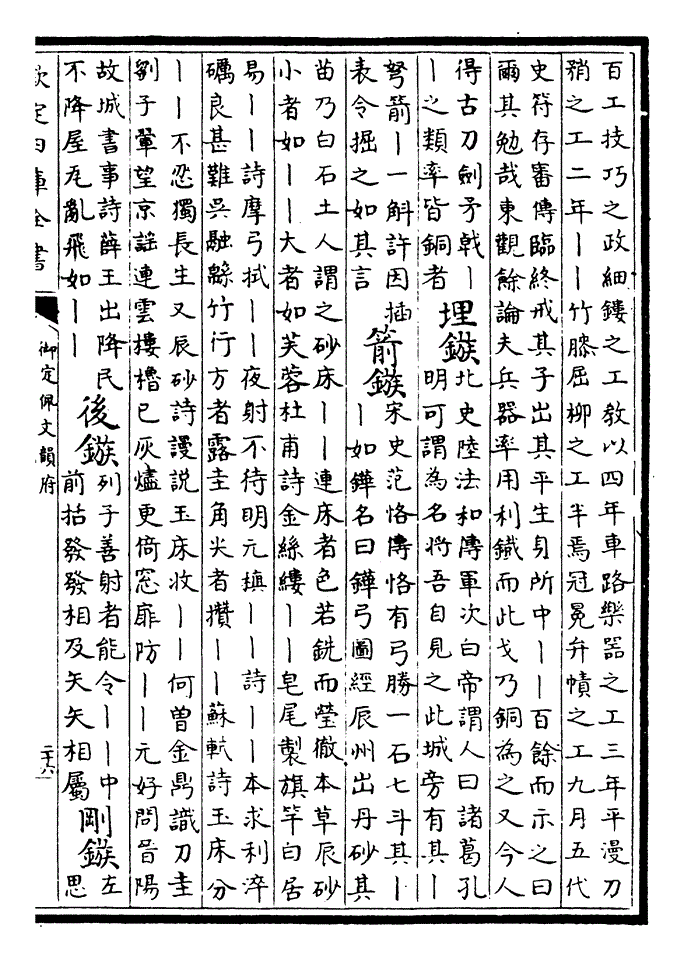 百工技巧之政細鏤之工教以四年車路樂器之工三年平漫刀
矟之工二年丨丨竹漆屈柳之工半焉冠冕弁幘之工九月五代
史符存審傳臨終戒其子出其平生身所中丨丨百餘而示之曰
爾其勉哉東觀餘論夫兵器率用利鐵而此戈乃銅為之又今人
得古刀劍矛戟丨
丨之類率皆銅者
埋鏃
北史陸法和傳軍次白帝謂人曰諸葛孔
明可謂為名將吾自見之此城旁有其丨
弩箭丨一斛許因插
表令掘之如其言
箭鏃
宋史范恪傳恪有弓勝一石七斗其丨
丨如鏵名曰鏵弓圖經辰州出丹砂其
苗乃白石土人謂之砂床丨丨連床者色若銑而瑩徹本草辰砂
小者如丨丨大者如芙蓉杜甫詩金絲縷丨丨皂尾製旗竿白居
易丨丨詩摩弓拭丨丨夜射不待明元稹丨丨詩丨丨本求利淬
礪良甚難吳融緜竹行方者露圭角尖者攢丨丨蘇軾詩玉床分
丨丨不忍獨長生又辰砂詩謾說玉床收丨丨何曾金鼎識刀圭
劉子翬望京謠連雲樓櫓已灰燼更倚窓扉防丨丨元好問晉陽
故城書事詩薛王出降民
不降屋瓦亂飛如丨丨
後鏃
列子善射者能令丨丨中
前括發發相及矢矢相屬
剛鏃
左
思
欽定四庫全書
御定佩文韻府
二十六